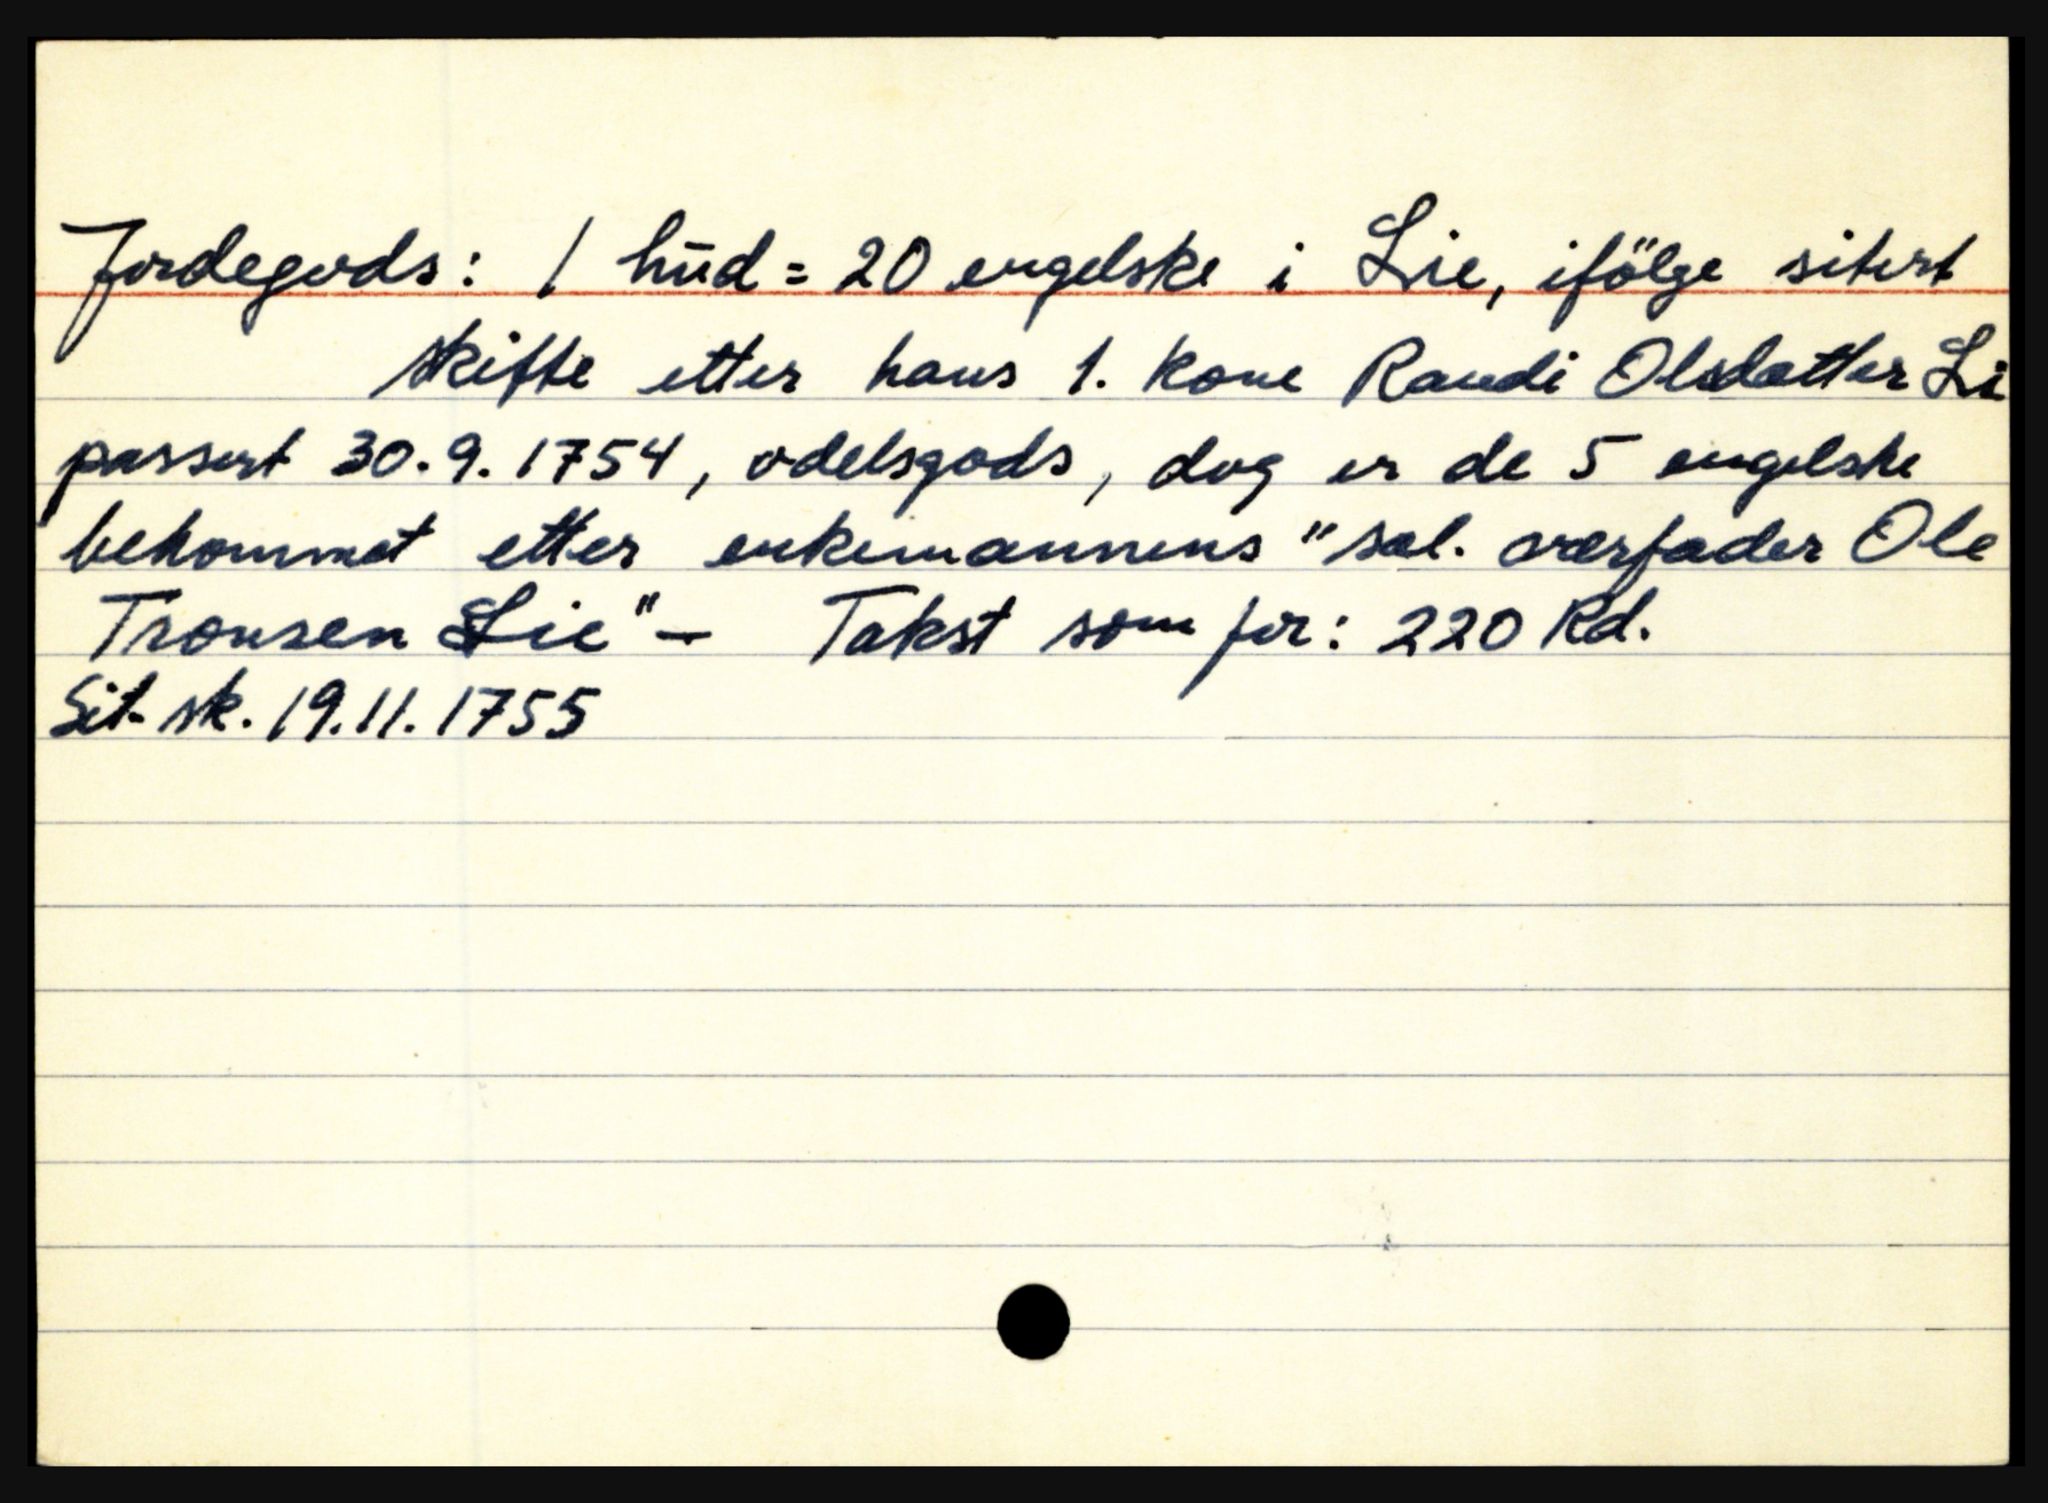 Jordegods: 1 hūd = 20 engelske i Lie, ifölge sitert
skifte etter hans 1. kone Randi Olsdatter Li
passert 30.9.1754, odelsgods, dog er de 5 engelske
bekommet etter enkemannens "sal. værfader Ole
Tronsen Lie" – Takst som för: 220 Rd.
Sit. sk. 19.11.1755